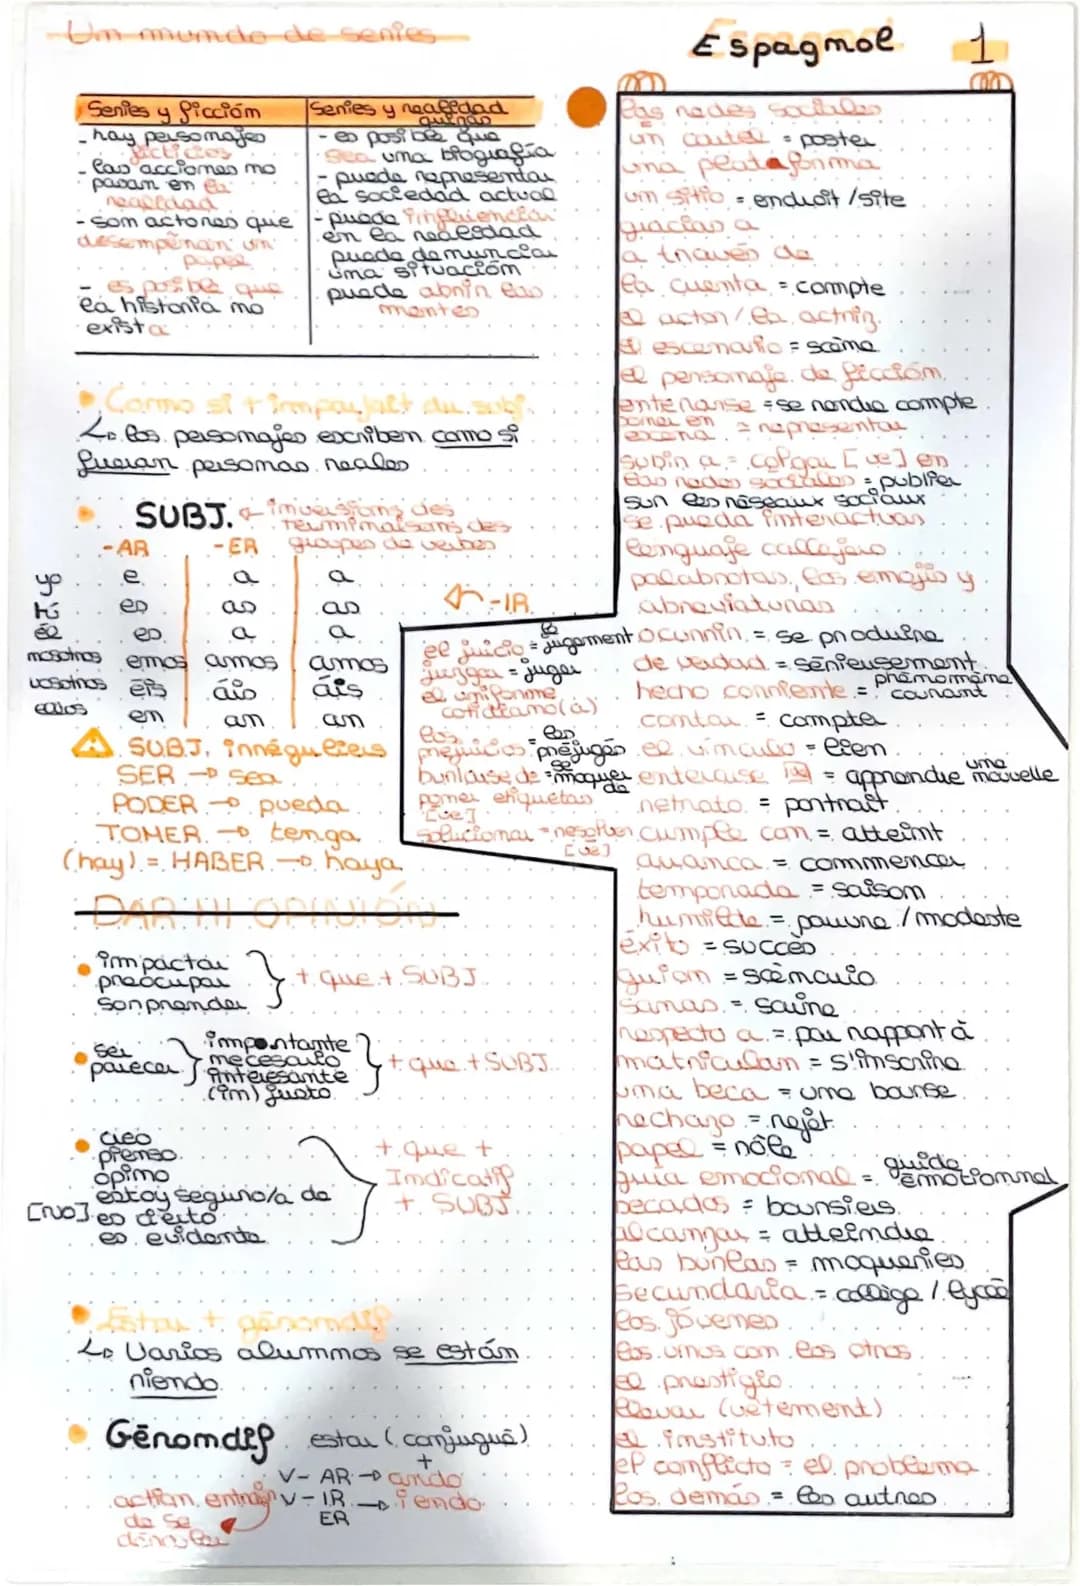 Un mundo de series
Espagnol 1
Series y ficción
- hay personajes
ficticios
- las acciones no
pasan en la
realidad
- son actores que
desempeñan un
papel
- es posible que
la historia no
exista
Series y realidad
quizás
- es posible que
sea una biografía
- pueda representar
la sociedad actual
- pueda influenciar
en la realidad
pueda denunciar
una situación
pueda abrir las
mentes
Como si + imparfait du subj.
↳ los personajes escriben como si
fueran personas reales
SUBJ. ← inversions des
terminaisons des
groupes de verbes
-AR -ER -IR
yo e a a
tú es as as
él es a a
nosotros emos amos amos
vosotros éis áis áis
ellos en an an
⚠ SUBJ. irréguliers
SER → sea
PODER → pueda
TOMER → tenga
(hay) = HABER → haya
DAR MI OPINIÓN
impactar
preocupar
sorprender
+ que + SUBJ.
ser
parecer
importante
necesario
interesante
(im) justo
+ que + SUBJ.
creo
pienso
opino
estoy seguro/a de
[NO] es cierto
es evidente
+ que +
Indicatif
+ SUBJ.
Estar + gérondif
↳ Varios alumnos se están
riendo
Gérondif estar (conjugué)
+
V- AR → ando
V- IR → iendo
ER
action entrain
de se
dérouler
las redes sociales
un cartel = poster
una plataforma
un sitio = endroit / site
gracias a
a través de
la cuenta = compte
el actor / la actriz
el escenario = scène
el personaje de ficción
enterarse = se rendre compte
poner en
escena = representar
subir a = colgar [ue] en
las redes sociales = publier
sur les réseaux sociaux
se pueda interactuar
lenguaje callejero
palabrotas, los emojis y
abreviaturas
el juicio = le jugement
juzgar = juger
el uniforme
cotidiano(a)
los
prejuicios = les préjugés
burlarse de = se moquer de
poner etiquetas
[ue]
solucionar = resolver
[ue]
ocurrir = se produire
de verdad = sérieusement
hecho corriente = phénomène
courant
contar = compter
el vínculo = lien
enterarse = apprendre une nouvelle
retrato = portrait
cumple con = atteint
avanca = commencer
temporada = saison
humilde = pauvre / modeste
éxito = succès
guion = scénario
sanas = saine
respecto a = par rapport à
matriculan = s'inscrire
una beca = une bourse
rechazo = rejet
papel = rôle
guía emocional = guide
émotionnal
becados = boursiers
alcanzar = atteindre
las burlas = moqueries
secundaria = collège / lycée
los jóvenes
los unos con los otros
el prestigio
llevar (vêtement)
el instituto
el conflicto = el problema
los demás = les autres